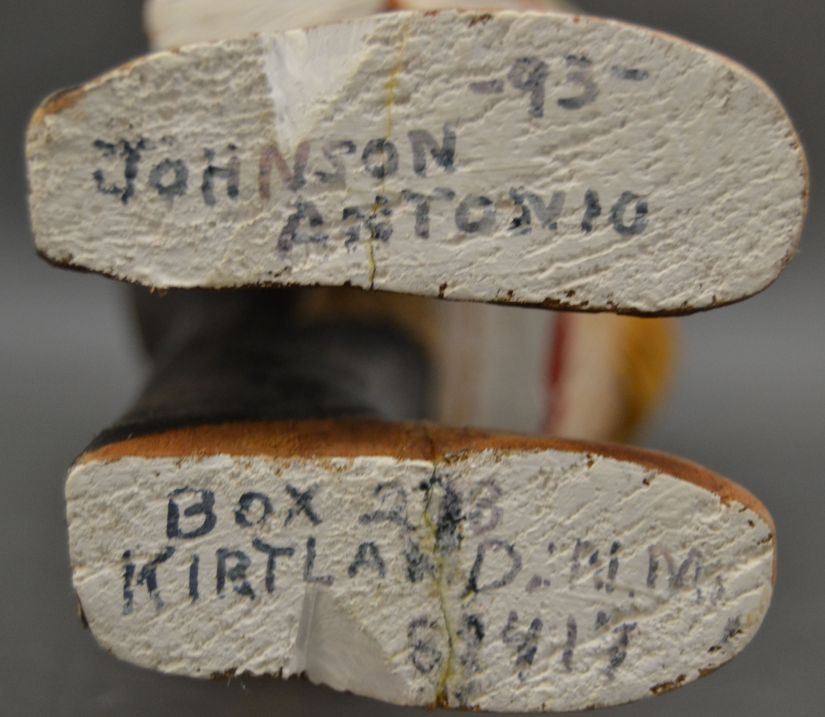 -93-
JOHNSON
ANTONIO
BOX
KIRTLAND. N.M.
87417